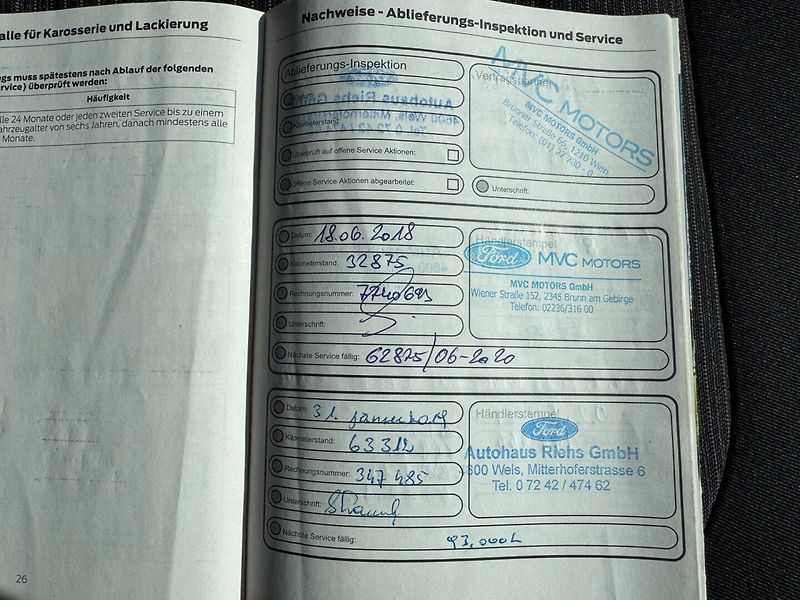 alle für Karosserie und Lackierung
ngs muss spätestens nach Ablauf der folgenden
ervice) überprüft werden:
Häufigkeit
lle 24 Monate oder jeden zweiten Service bis zu einem
ahrzeugalter von sechs Jahren, danach mindestens alle
Monate.
26
Nachweise - Ablieferungs-Inspektion und Service
Ablieferungs-Inspektion
Kilometerstand:
Überprüft auf offene Service Aktionen:
Offene Service Aktionen abgearbeitet:
Vertragspartner
MVC MOTORS
MVC MOTORS GmbH
Brunner Straße 66, 1210 Wien
Telefon: (01) 27 780 - 0
Unterschrift:
Autohaus Riehs GmbH
4600 Wels, Mitterhoferstrasse
Tel. 0 72 42 / 474
Datum: 18.06.2018
Kilometerstand: 32875
Rechnungsnummer:
Unterschrift:
Nächste Service fällig: 62875/06-2020
Händlerstempel
Ford MVC MOTORS
MVC MOTORS GmbH
Wiener Straße 152, 2345 Brunn am Gebirge
Telefon: 02236/316 00
Datum: 31. Januar 2019
Kilometerstand: 63312
Rechnungsnummer: 347 485
Unterschrift:
Nächste Service fällig: 93.000
Händlerstempel
Ford
Autohaus Riehs GmbH
4600 Wels, Mitterhoferstrasse 6
Tel. 0 72 42 / 474 62